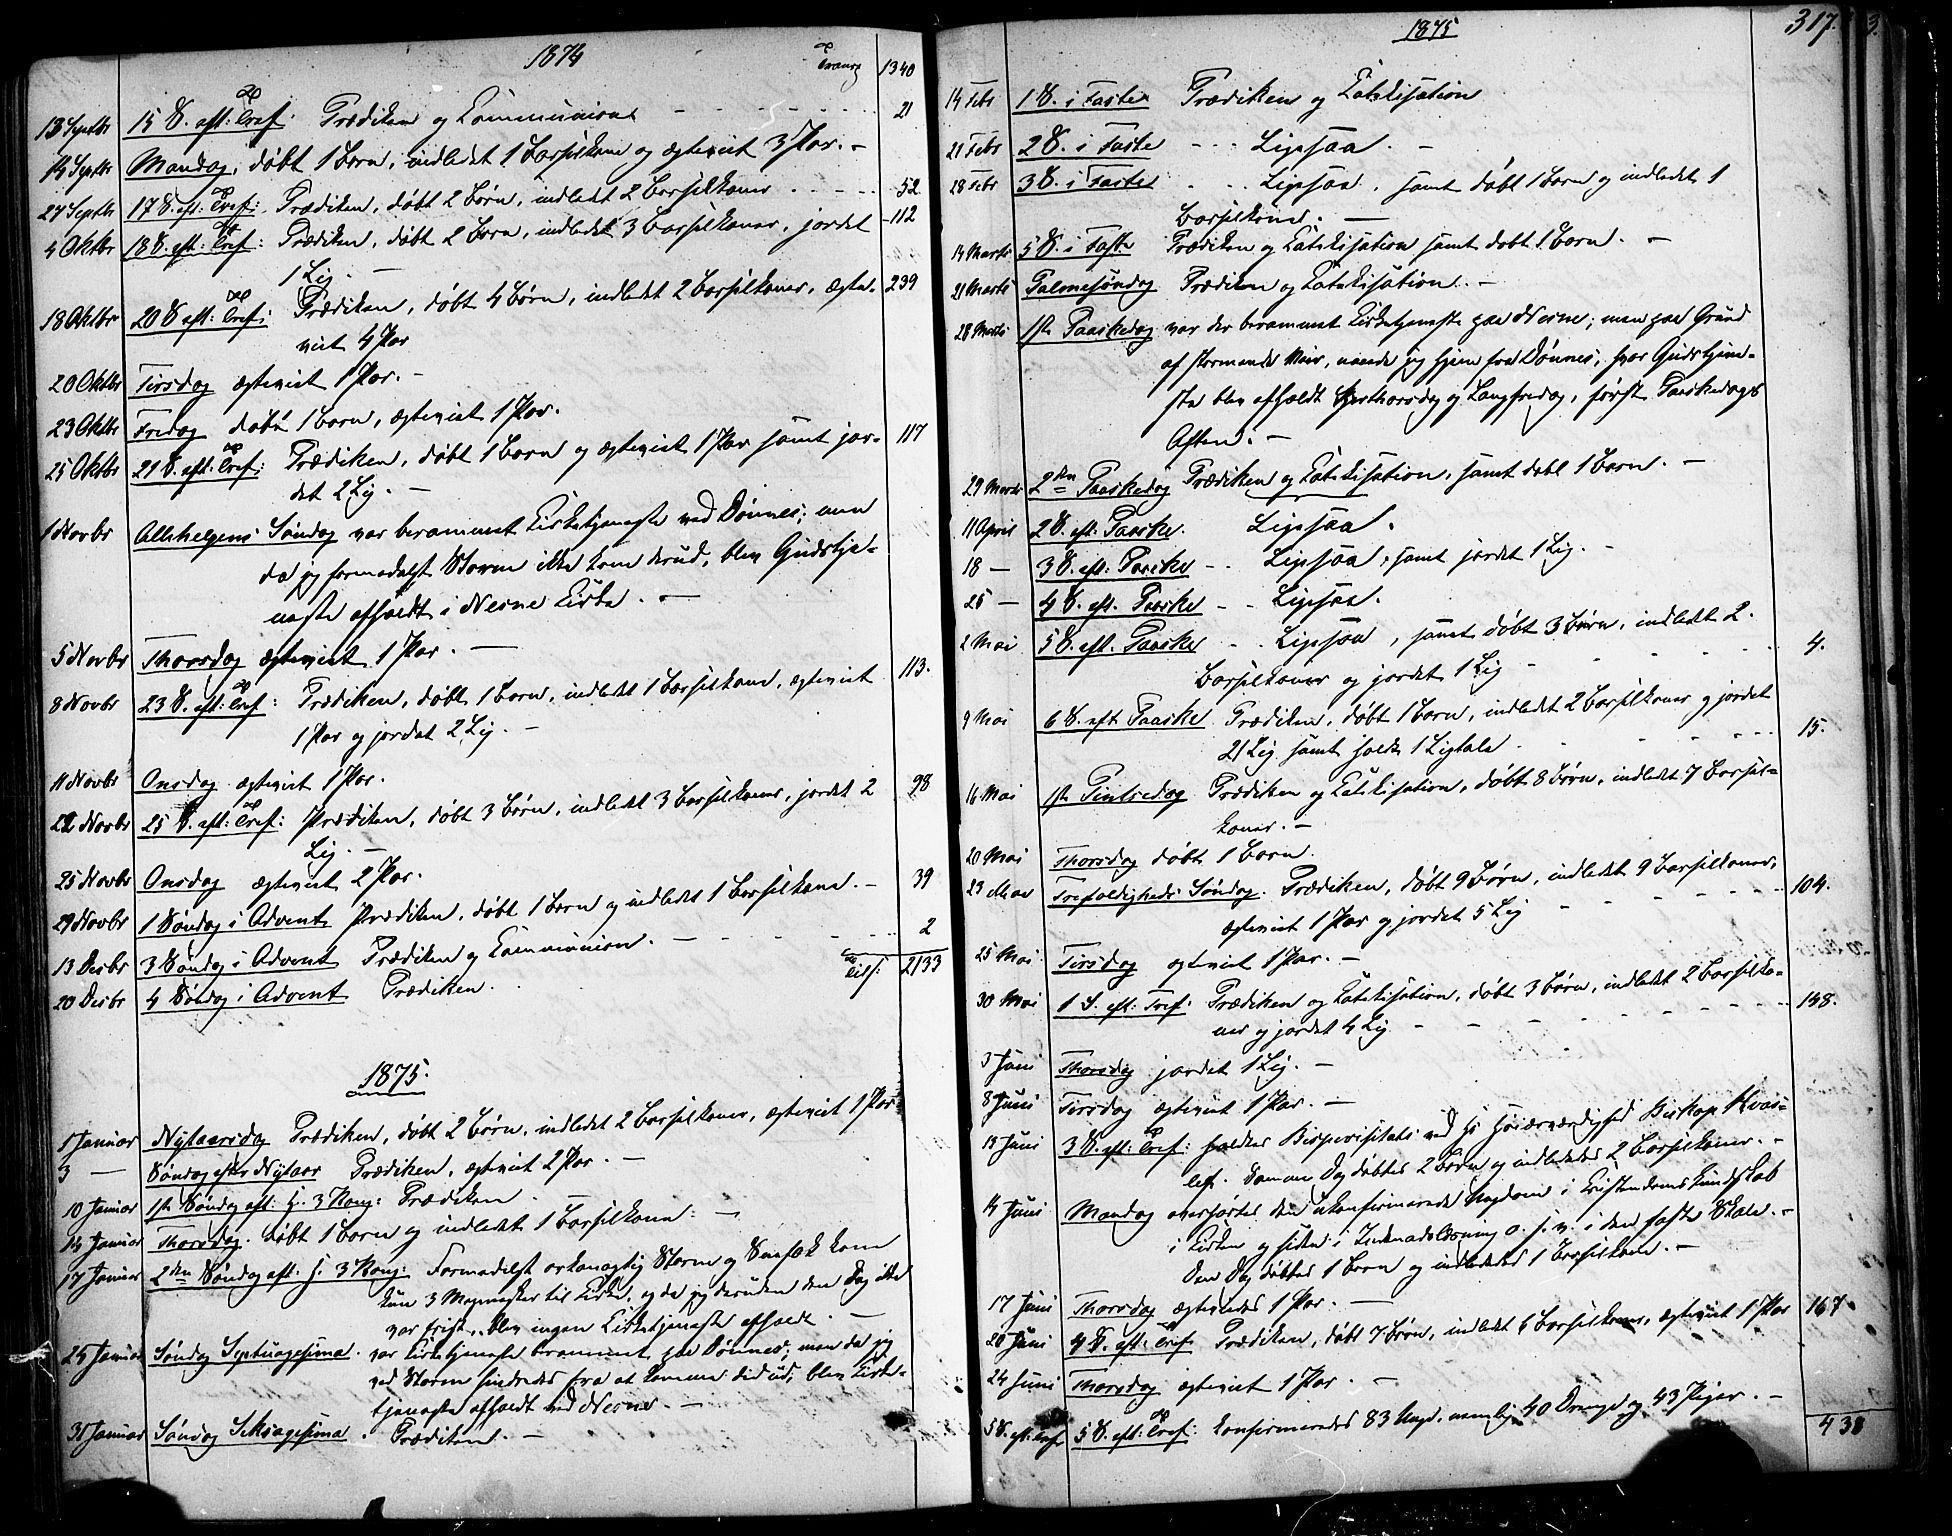 1874
Transp 1340
13 Septbr 15 S. eft: Tref: Prædiken og Communion 21
14 Septbr Mandag, døbt 1 Barn, indledet 1 Barselkone og ægteviet 3 Par. –
27 Septbr 17 S. eft. Tref: Prædiken, døbt 2 Børn, indledet 2 Barselkoner 52
4 Oktbr 18 S. eft: Tref: Prædiken, døbt 2 Børn, indledet 3 Barselkoner, jordet 112
1 Lig. –
18 Oktbr 20 S. eft: Tref: Prædiken, døbt 4 Børn, indledet 2 Barselkoner, ægte- 239
viet 4 Par
20 Oktbr Tirsdag ægteviet 1 Par. –
23 Oktbr Fredag døbt 1 Barn, ægteviet 1 Par.
25 Oktbr 21 S. eft: Tref: Prædiken, døbt 1 Barn og ægteviet 1 Par samt jor- 117
det 2 Lig. –
1 Novbr Allehelgens Søndag var berammet Kirketjeneste ved Dønnes; men
da jeg formedelst Storm ikke kom derud, blev Gudstje-
neste afholdt i Nesne Kirke. –
5 Novbr Thorsdag ægteviet 1 Par. –
8 Novbr 23 S. eft: Tref: Prædiken, døbt 1 Barn, indledet 1 Barselkone, ægteviet 113.
1 Par og jordet 2 Lig. –
11 Novbr Onsdag ægteviet 1 Par.
22 Novbr 25 S. eft: Tref: Prædiken, døbt 3 Børn, indledet 3 Barselkoner, jordet 2 98
Lig. –
25 Novbr Onsdag ægteviet 2 Par.
29 Novbr 1 Søndag i Advent Prædiken, døbt 1 Barn og indledet 1 Barselkone. – 39
13 Desbr 3 Søndag i Advent Prædiken og Communion. – 2
20 Desbr 4 Søndag i Advent Prædiken. Tils: 2133
1875.
1 Januar Nytaarsdag Prædiken, døbt 2 Børn, indledet 2 Barselkoner, ægteviet 1 Par.
3 — Søndag efter Nytaar Prædiken, ægteviet 2 Par. –
10 Januar 1ste Søndag eft: H. 3 Kong: Prædiken.
14 Januar Thorsdag. døbt 1 Barn og indledet 1 Barselkone. –
17 Januar 2den Søndag eft: H. 3 Kong: Formedelst orkanagtig Storm og Snefok kom
kun 3 Mennesker til Kirke, og da jeg desuden den Dag ikke
var frisk, blev ingen Kirketjeneste afholdt. –
25 Januar Søndag Septuagesima. var Kirketjeneste berammet paa Dønnes; men da jeg
ved Storm hindredes fra at komme did ud, blev Kirke-
tjeneste afholdt ved Nesne. –
31 Januar Søndag Seksagesima. Prædiken. –
1875
317.
14 Febr 1 S. i Faste Prædiken og Katekisation
21 Febr 2 S. i Faste – – Ligesaa. –
28 Febr 3 S. i Faste – – Ligesaa, samt døbt 1 Barn og indledet 1
Barselkone. –
14 Marts 5 S. i Faste Prædiken og Katekisation samt døbt 1 Barn. –
21 Marts Palmesøndag Prædiken og Katekisation. –
28 Marts 1ste Paaskedag var der berammet Kirketjeneste paa Nesne; men paa Grund
af stormende Veir, naaede jeg hjem fra Dønnes, hvor Gudstjene-
ste blev afholdt Skjærthorsdag og Langfredag, først Paaskedags
Aften. –
29 Marts 2den Paaskedag Prædiken og Katekisation, samt døbt 1 Barn. –
11 April 2 S. eft. Paaske. Ligesaa.
18 — 3 S. eft: Paaske – – Ligesaa, samt jordet 1 Lig. –
25 — 4 S. eft. Paaske – – Ligesaa.
2 Mai 5 S. eft. Paaske – – Ligesaa, samt døbt 3 Børn, indledet 2.
Barselkoner og jordet 1 Lig 4.
9 Mai 6 S. eft Paaske Prædiken, døbt 1 Barn, indledet 2 Barselkoner og jordet
21 Lig samt holdt 1 Ligtale. 15.
16 Mai 1ste Pintsedag Prædiken og Katekisation, døbt 8 Børn, indledet 7 Barsel-
koner. –
20 Mai Thorsdag døbt 1 Barn.
23 Mai Trefoldigheds Søndag. Prædiken, døbt 9 Børn, indledet 9 Barselkoner,
ægteviet 1 Par og jordet 5 Lig 104.
25 Mai Tirsdag ægteviet 1 Par. –
30 Mai 1 S. eft: Tref: Prædiken og Katekisation, døbt 3 Børn, indledet 2 Barselko-
ner og jordet 4 Lig 148.
3 Juni Thorsdag jordet 1 Lig. –
8 Juni Tirsdag ægteviet 1 Par. –
13 Juni 3 S. eft: Tref: holdtes Bispevisitats ved Hs Høiærværdighed Biskop Hvos-
lef. Samme Dag døbtes 2 Børn og indledtes 2 Barselkoner. –
14 Juni Mandag overhørtes den ukonfirmerede Ungdom i Kristendomskundskab
i Kirken og siden i Indenadslæsning o. s. v. i den faste Skole. –
Den Dag døbtes 1 Barn og indledtes 1 Barselkone. –
17 Juni Thorsdag ægteviedes 1 Par. –
20 Juni 4 S. eft: Tref. Prædiken, døbt 7 Børn, indledet 6 Barselkoner, ægteviet 1 Par 167.
24 Juni Thorsdag ægteviet 1 Par. –
5 S. eft. Tref 5 S. eft: Tref: konfirmeredes 83 Ungd. nemlig 40 Drenge og 43 Piger. –
438